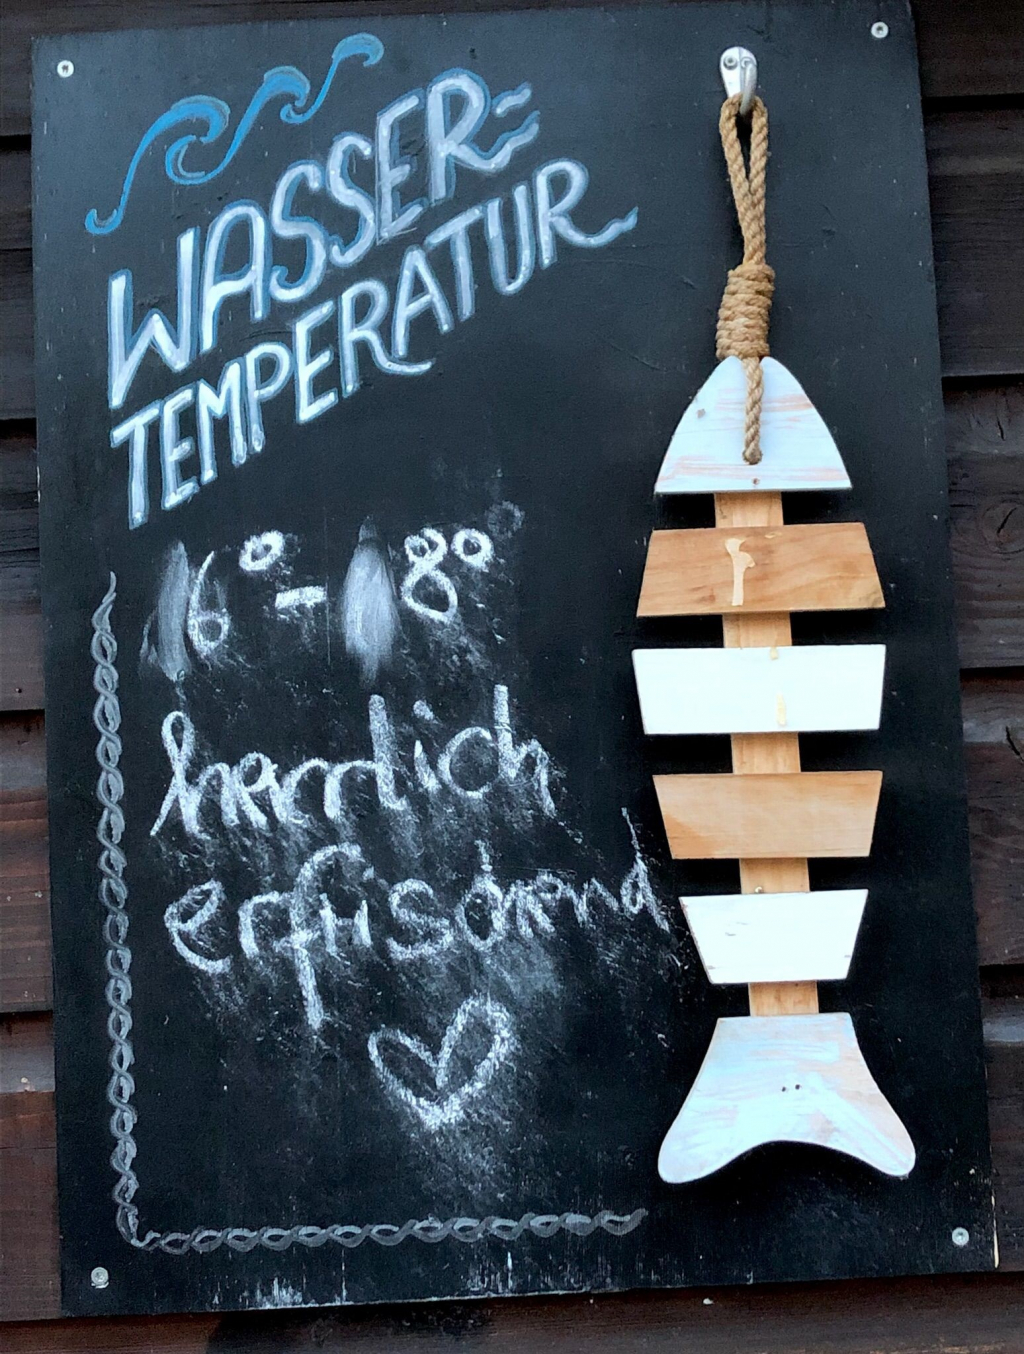 WASSER-
TEMPERATUR
16° - 18°
herrlich
erfrischend